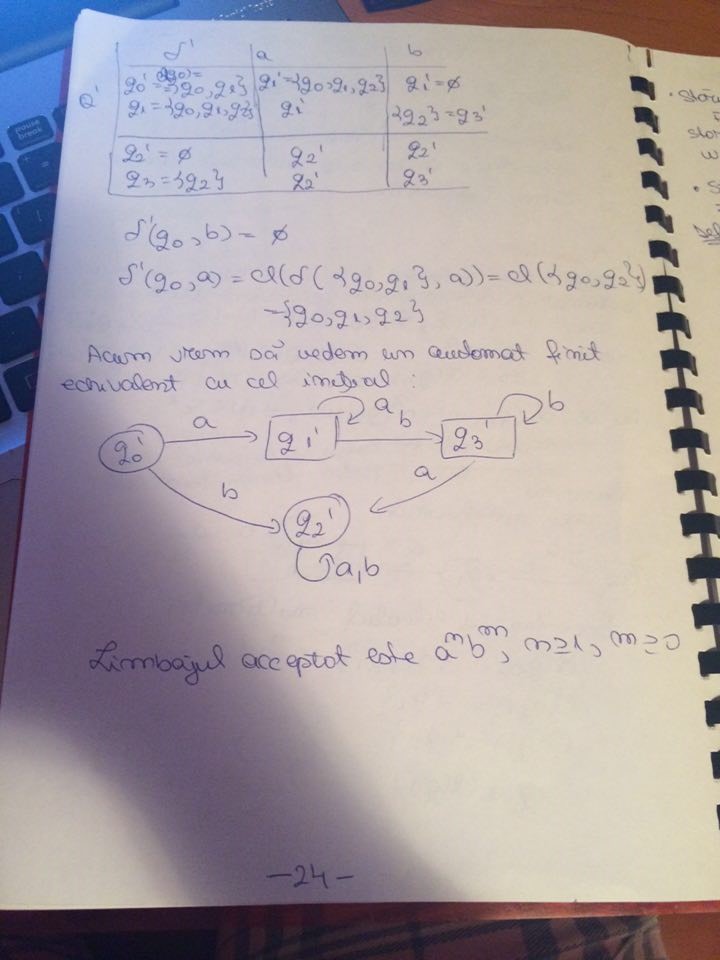 δ' a b
Q' q0' = {q0, q1} q1' = {q0, q1, q2} q1' = ∅
q1 = {q0, q1, q2} q1' {q2} = q3'
q2' = ∅ q2' q2'
q3 = {q2} q2' q3'
δ'(q0, b) = ∅
δ'(q0, a) = cl(δ({q0, q1}, a)) = cl({q0, q2})
= {q0, q1, q2}
Acum vrem să vedem un automat finit
echivalent cu cel inițial :
a a b b
q0' q1' q3'
b a
q2'
a,b
Limbajul acceptat este aⁿbᵐ, n≥1, m≥0
-24-
Pause
break
stor
w